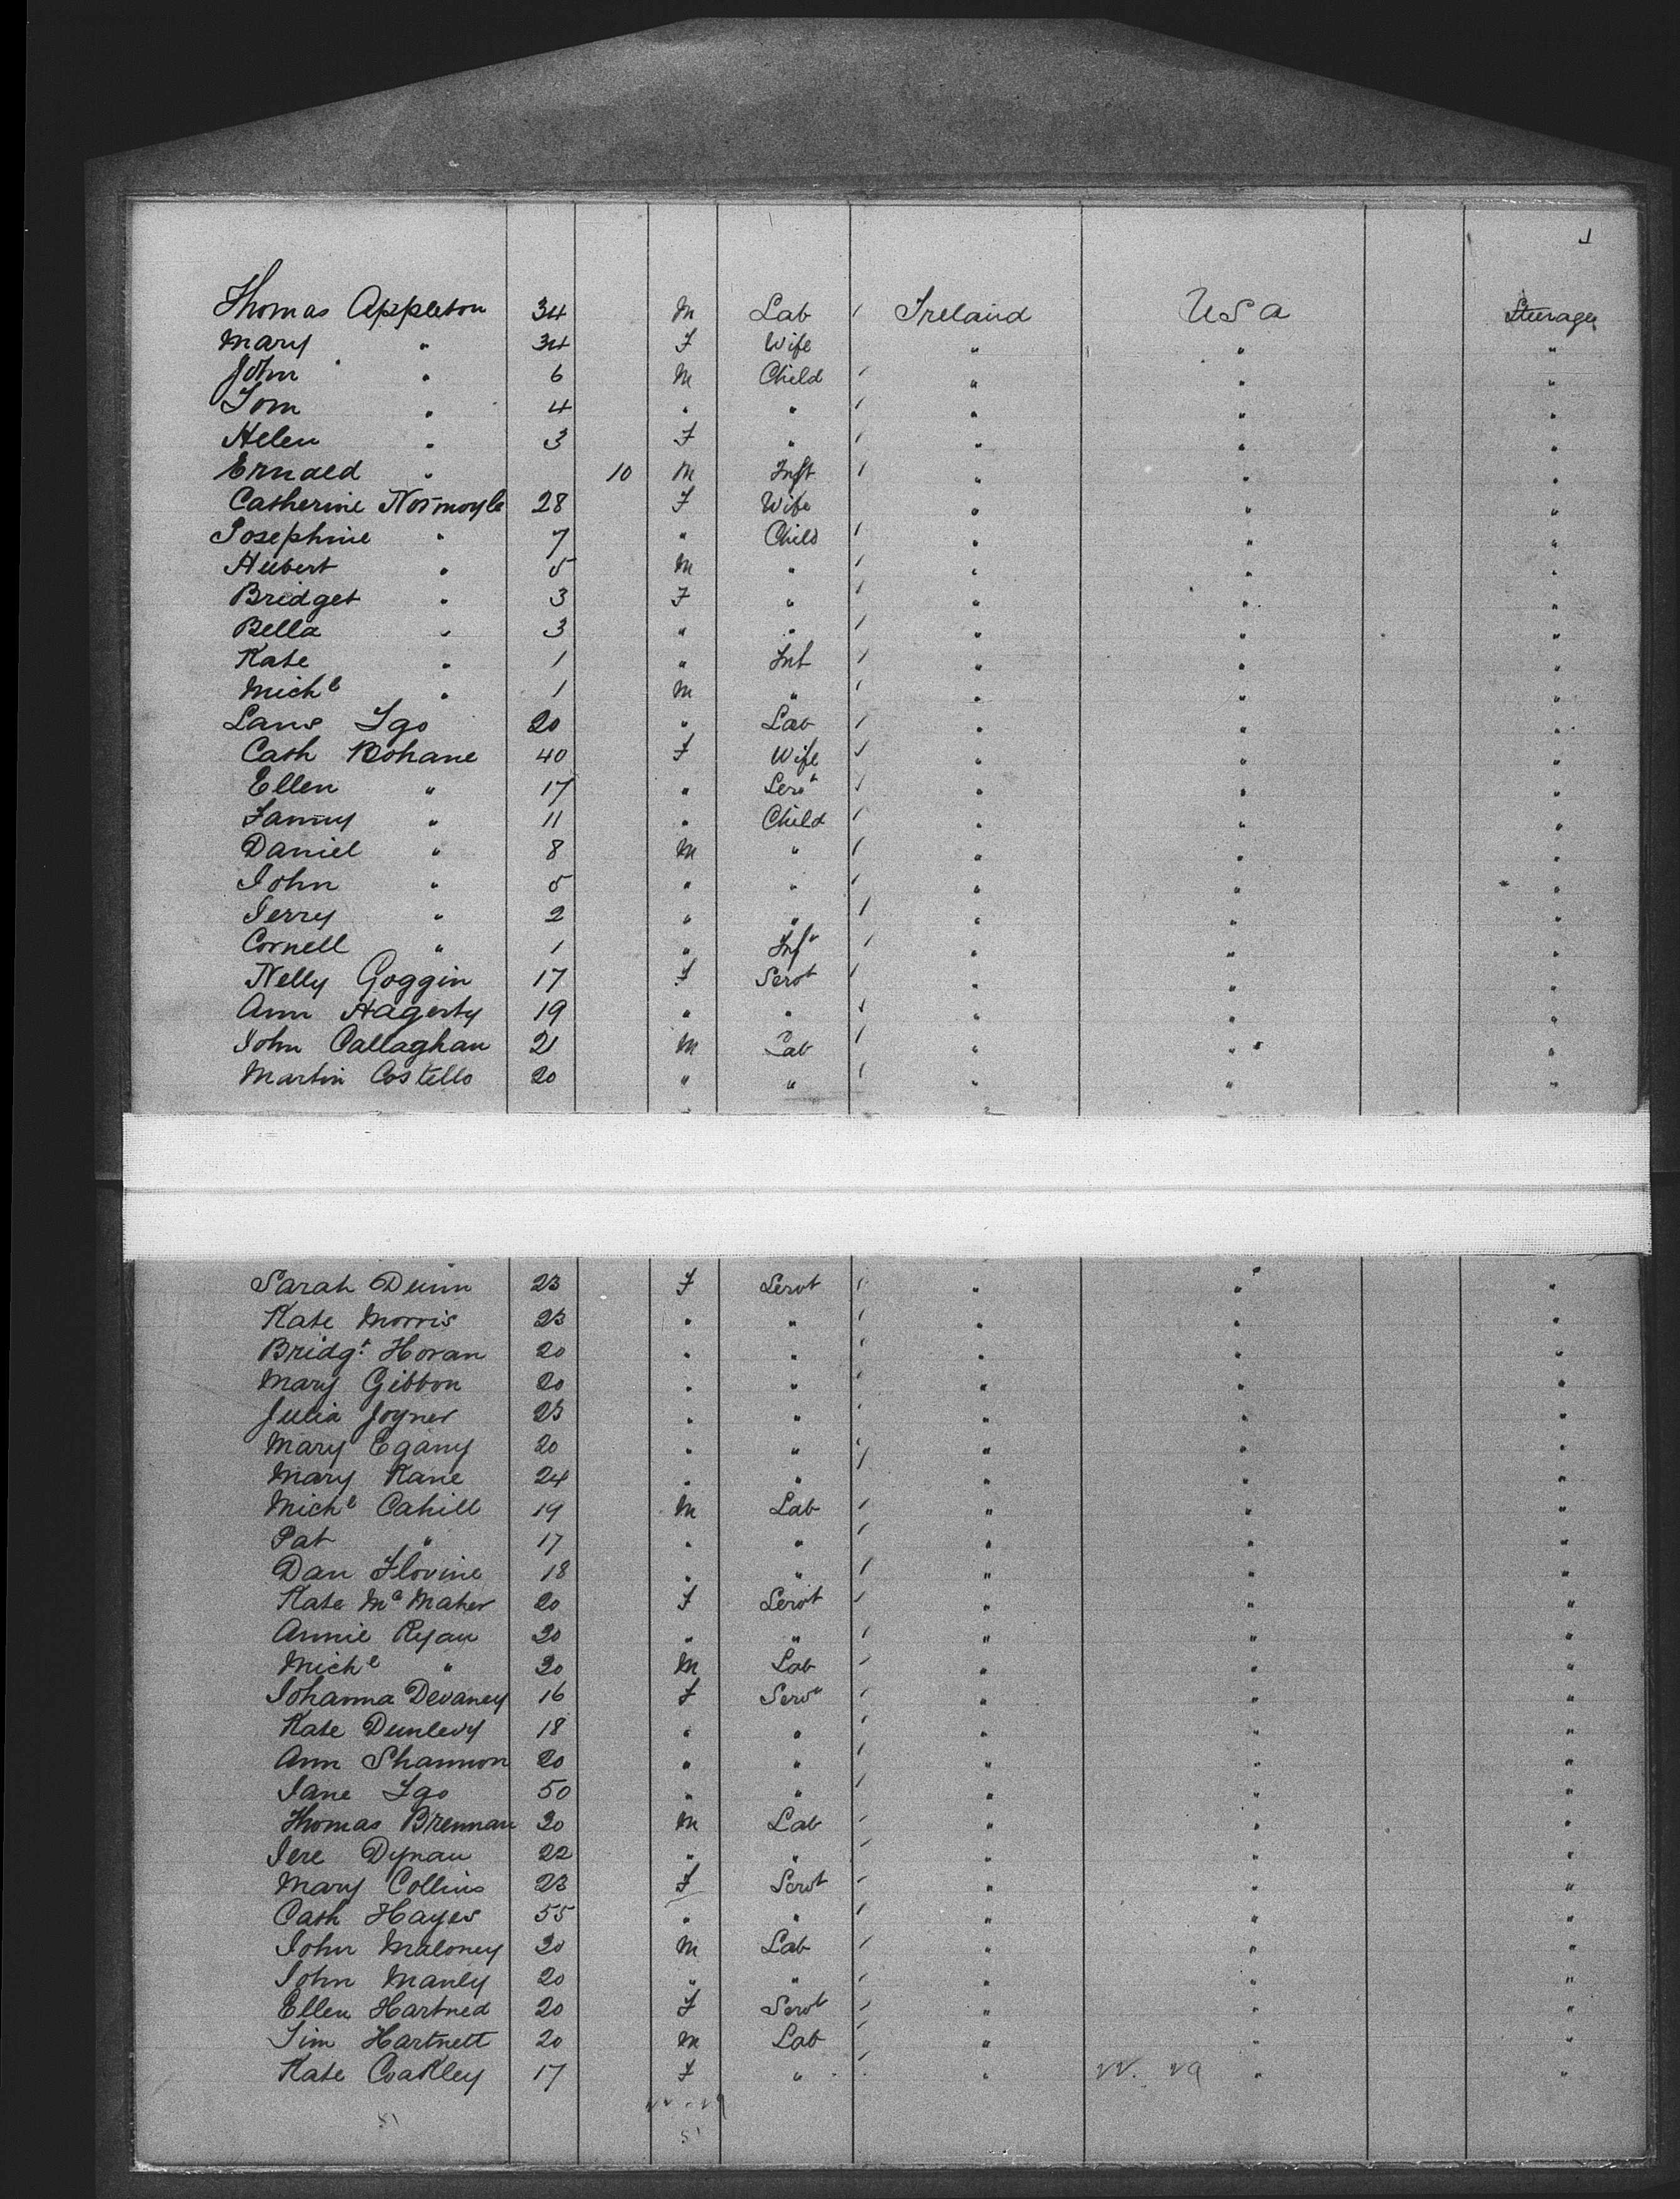 Thomas Appleton 34 M Lab / Ireland USA Steerage
Mary " 34 F Wife " " "
John " 6 M Child / " " "
Tom " 4 " " / " " "
Helen " 3 F " / " " "
Ernald " 10 M Inft / " " "
Catherine Normoyle 28 F Wife " " "
Josephine " 7 " Child / " " "
Hubert " 5 M " / " " "
Bridget " 3 F " / " " "
Bella " 3 " " / " " "
Kate " 1 " Inf / " " "
Michl " 1 M " / " " "
Igo 20 " Lab / " " "
Cath Bohane 40 F Wife / " " "
Ellen " 17 " Serv" / " " "
Fanny " 11 " Child / " " "
Daniel " 8 M " / " " "
John " 5 " " / " " "
Jerry " 2 " " / " " "
Cornell " 1 " Inf" / " " "
Nelly Goggin 17 F Servt / " " "
Ann Hagerty 19 " " / " " "
John Callaghan 21 M Lab / " " "
Martin Costello 20 " " / " " "
Sarah Dunn 23 F Servt / " " "
Kate Morris 23 " " / " " "
Bridgt Horan 20 " " / " " "
Mary Gibbon 20 " " / " " "
Julia Joyner 23 " " / " " "
Mary Egany 20 " " / " " "
Mary Kane 24 " " " " "
Michl Cahill 19 M Lab / " " "
Pat " 17 " " / " " "
Dan Flovine 18 " " / " " "
Kate Mc Maher 20 F Servt / " " "
Annie Ryan 20 " " / " " "
Michl " 20 M Lab / " " "
Johanna Devaney 16 F Serv" / " " "
Kate Dunlevy 18 " " / " " "
Ann Shannon 20 " " / " " "
Jane Igo 50 " " / " " "
Thomas Brennan 20 M Lab / " " "
Jere Dynau 22 " " / " " "
Mary Collins 23 F Servt / " " "
Cath Hayes 55 " " / " " "
John Maloney 20 M Lab / " " "
John Manly 20 " " / " " "
Ellen Hartned 20 F Servt / " " "
Tim Hartnett 20 M Lab / " " "
Kate Coakley 17 F " / " " "